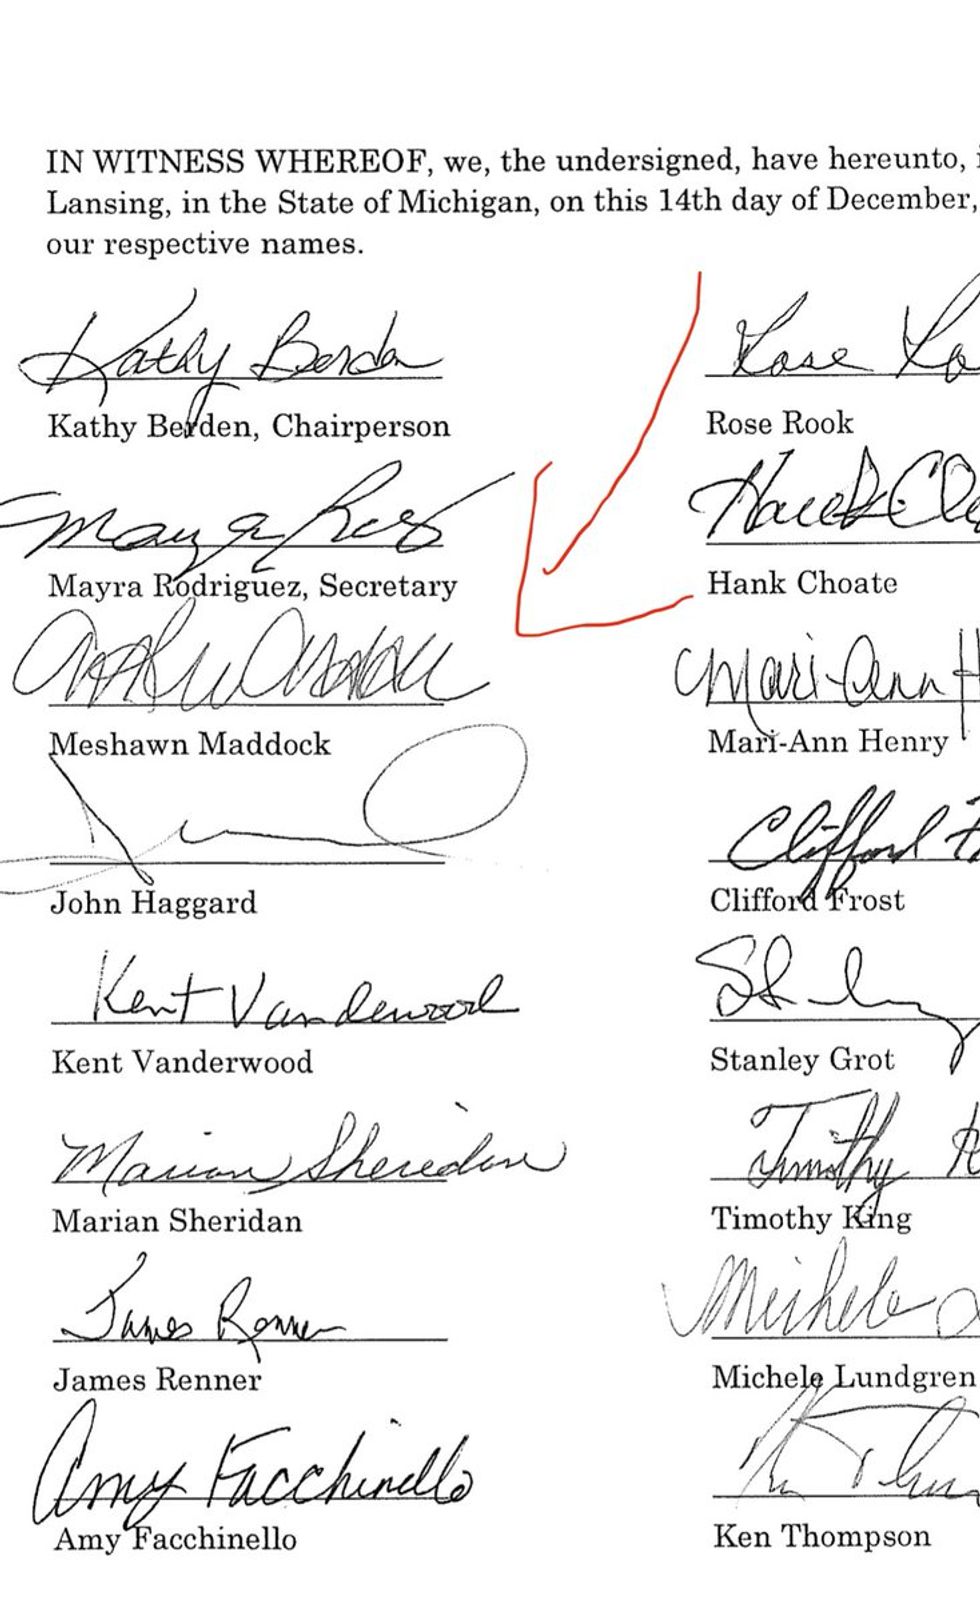 IN WITNESS WHEREOF, we, the undersigned, have hereunto,
Lansing, in the State of Michigan, on this 14th day of December,
our respective names.
Kathy Berden
Rose
Kathy Berden, Chairperson
Rose Rook
Mayra
Hank
Mayra Rodriguez, Secretary
Hank Choate
Mari-Ann H
Meshawn Maddock
Mari-Ann Henry
Clifford
John Haggard
Clifford Frost
Kent Vanderwood
Kent Vanderwood
Stanley Grot
Marian Sheridan
Timothy
Marian Sheridan
Timothy King
James Renner
Michele
James Renner
Michele Lundgren
Amy Facchinello
Amy Facchinello
Ken Thompson